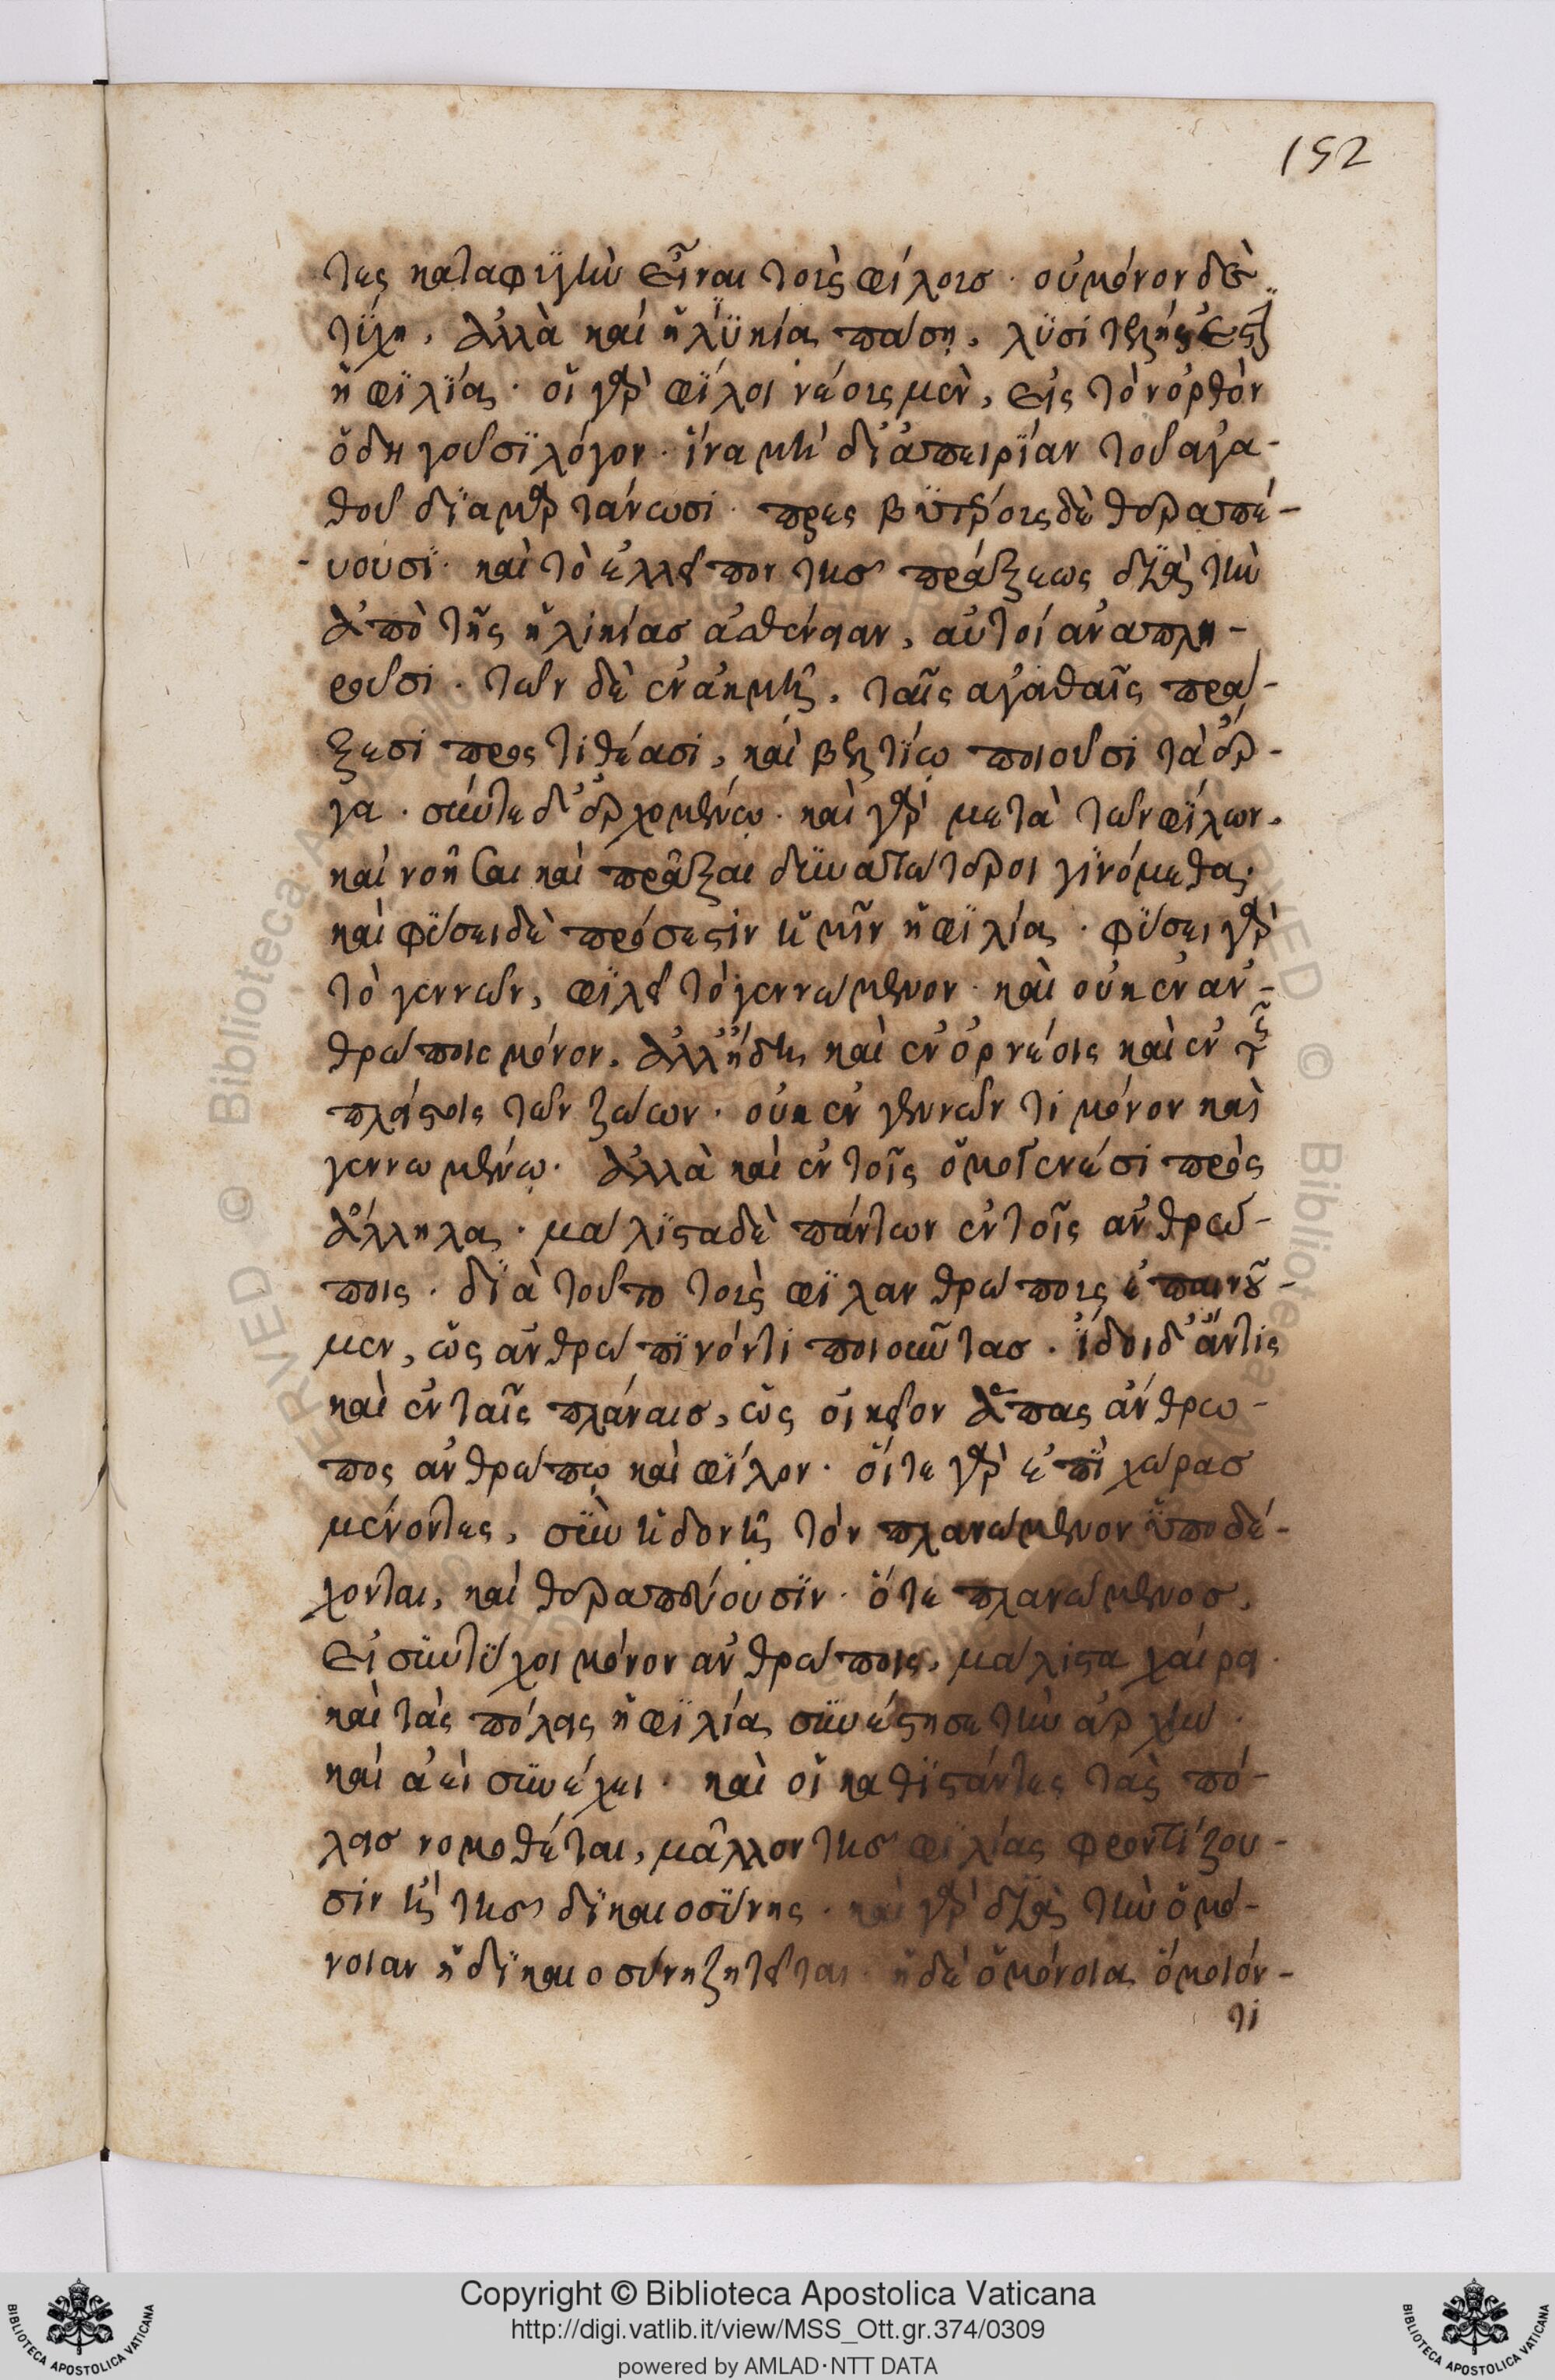 152
τες καταφυγὴν εἶναι τοὺς φίλους· οὐ μόνον δὲ
τύχῃ, ἀλλὰ καὶ ἡλικία πάσῃ, λυσιτελής ἐστιν
ἡ φιλία· οἱ γὰρ φίλοι νέους μὲν, εἰς τὸν ὀρθὸν
ὁδηγοῦσι λόγον· ἵνα μὴ δι' ἀπειρίαν τοῦ ἀγα-
θοῦ διαμαρτάνωσι· πρεσβυτέρους δὲ θεραπέ-
υουσι· καὶ τὸ ἐλλεῖπον τῆς πράξεως διὰ τὴν
ἀπὸ τῆς ἡλικίας ἀσθένειαν, αὐτοὶ ἀναπλη-
ροῦσι· τῶν δὲ ἐν ἀκμῇ, ταῖς ἀγαθαῖς πρά-
ξεσι προστιθέασι, καὶ βελτίω ποιοῦσι τὰ ἔρ-
γα· σύν τε δ' ἐρχομένω· καὶ γὰρ μετὰ τῶν φίλων,
καὶ νοῆσαι καὶ πρᾶξαι δυνατώτεροι γινόμεθα·
καὶ φύσει δὲ πρόσεστιν ἡμῖν ἡ φιλία· φύσει γὰρ
τὸ γεννῶν, φιλεῖ τὸ γεννώμενον· καὶ οὐκ ἐν ἀν-
θρώποις μόνον, ἀλλ' ἤδη καὶ ἐν ὀρνέοις καὶ ἐν τοῖς
πλείστοις τῶν ζώων· οὐκ ἐν γεννῶντι μόνον καὶ
γεννωμένω· ἀλλὰ καὶ ἐν τοῖς ὁμογενέσι πρὸς
ἄλληλα· μάλιστα δὲ πάντων ἐν τοῖς ἀνθρώ-
ποις· διὰ τοῦτο τοὺς φιλανθρώπους ἐπαινοῦ-
μεν, ὡς ἀνθρώπινόν τι ποιοῦντας· ἴδοι δ' ἄν τις
καὶ ἐν ταῖς πλάναις, ὡς οἰκεῖον ἅπας ἄνθρω-
πος ἀνθρώπῳ καὶ φίλον· οἵ τε γὰρ ἐπὶ χώρας
μένοντες, σὺν ἡδονῇ τὸν πλανώμενον ὑποδέ-
χονται, καὶ θεραπεύουσιν· ὅ τε πλανώμενος,
εἰ συντύχοι μόνον ἀνθρώποις, μάλιστα χαίρει·
καὶ τὰς πόλεις ἡ φιλία συνέστησε τὴν ἀρχὴν·
καὶ ἀεὶ συνέχει· καὶ οἱ καθιστάντες τὰς πό-
λεις νομοθέται, μᾶλλον τῆς φιλίας φροντίζου-
σιν ἢ τῆς δικαιοσύνης· καὶ γὰρ διὰ τὴν ὁμό-
νοιαν ἡ δικαιοσύνη ζητεῖται· ἡ δὲ ὁμόνοια ὅμοιόν-
τι
Copyright © Biblioteca Apostolica Vaticana
http://digi.vatlib.it/view/MSS_Ott.gr.374/0309
powered by AMLAD·NTT DATA
BIBLIOTECA APOSTOLICA VATICANA
BIBLIOTECA APOSTOLICA VATICANA